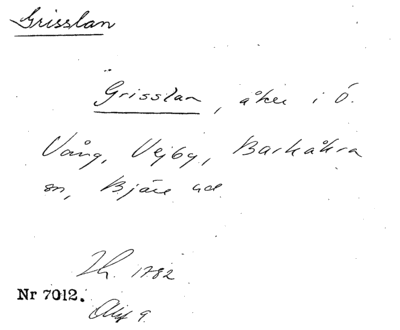 Grisslan
Grisslan, åker i Ö.
Vång, Vejby, Barkåkra
sn, Bjäre hd.
Lh. 1782
Nr 7012.
Akt 9